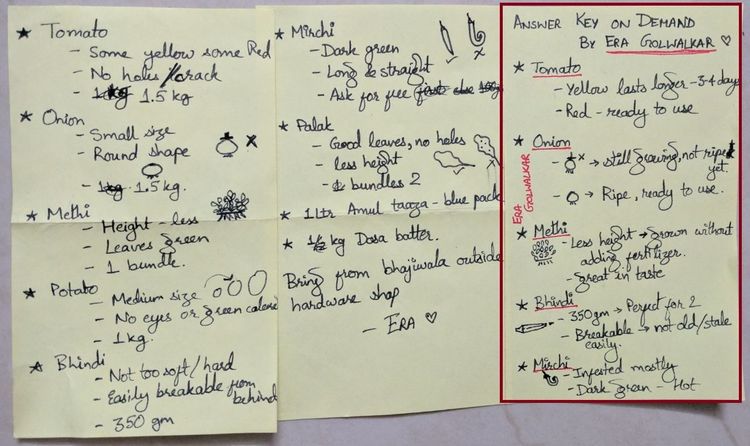 ★ Tomato
- Some yellow some Red
- No holes/crack
- 1.5 kg
★ Onion
- Small size
- Round shape
- 1.5 kg.
★ Methi
- Height - less
- Leaves green
- 1 bundle.
★ Potato
- Medium size
- No eyes or green colored
- 1 kg.
★ Bhindi
- Not too soft/hard
- Easily breakable from behind
- 350 gm
★ Mirchi
- Dark green
- Long & straight
- Ask for free
★ Palak
- Good leaves, no holes
- less height
- bundles 2
★ 1 Ltr Amul taaza - blue pack
★ 1/2 kg Dosa batter.
Bring from bhajiwala outside
hardware shop
- ERA ♡
ANSWER KEY ON DEMAND
BY ERA GOLWALKAR ♡
★ Tomato
- Yellow lasts longer - 3-4 days
- Red - ready to use
★ Onion
- → still growing, not ripe yet.
- → Ripe, ready to use.
ERA GOLWALKAR
★ Methi
- Less height → grown without
adding fertilizer.
- Great in taste
★ Bhindi
- 350gm → Perfect for 2
- Breakable → not old/stale
easily.
★ Mirchi
- Infested mostly
- Dark green - Hot